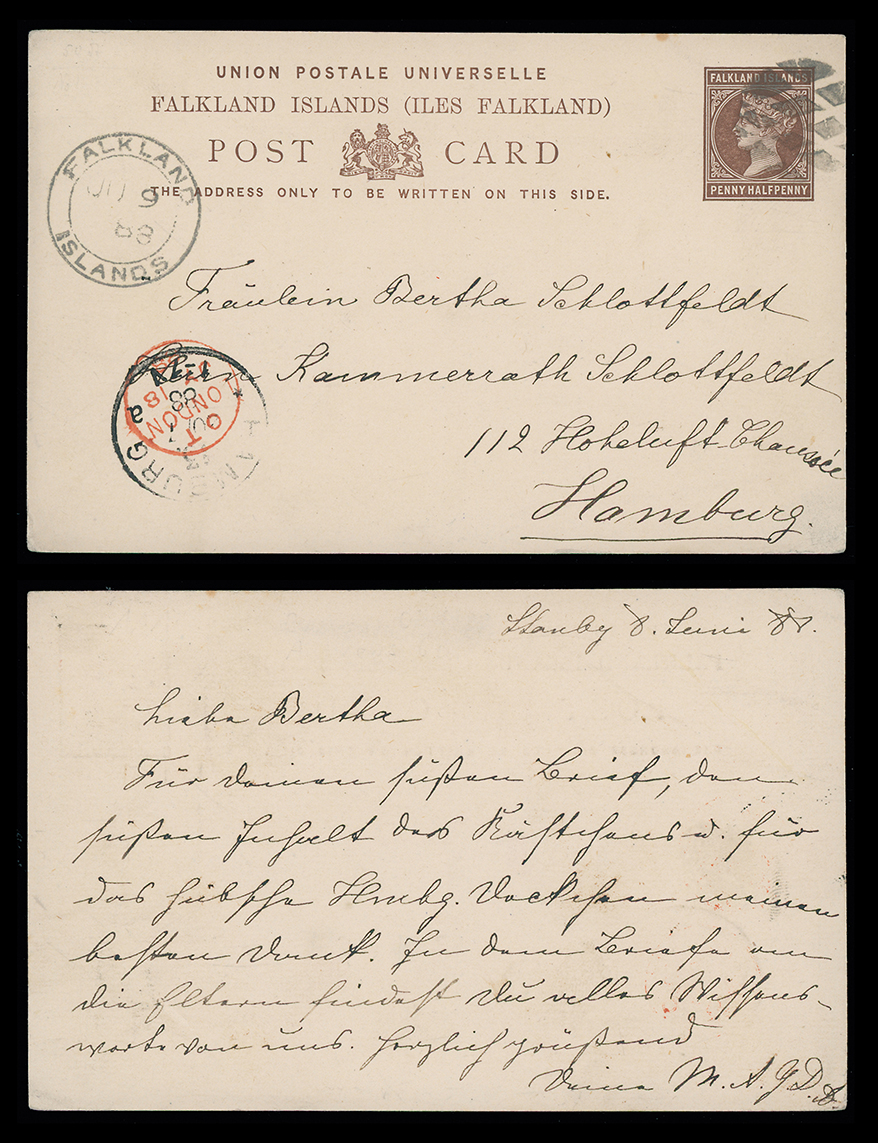 UNION POSTALE UNIVERSELLE
FALKLAND ISLANDS (ILES FALKLAND)
POST CARD
THE ADDRESS ONLY TO BE WRITTEN ON THIS SIDE.
FALKLAND ISLANDS
PENNY HALFPENNY
FALKLAND ISLANDS
JU 9
88
Fräulein Bertha Schlottfeldt
Kammerrath Schlottfeldt
112 Hoheluft Chaussée
Hamburg.
LONDON
HAMBURG
88
Stanley 8. Juni 88.
Liebe Bertha
Für Deinen süßen Brief, den
süßen Inhalt des Kästchens u. für
das hübsche Hmbg. Deckchen meinen
besten Dank. In dem Briefe an
die Eltern findest Du alles Wissens-
werte von uns. Herzlich grüßend
Deine M. A. J. D.